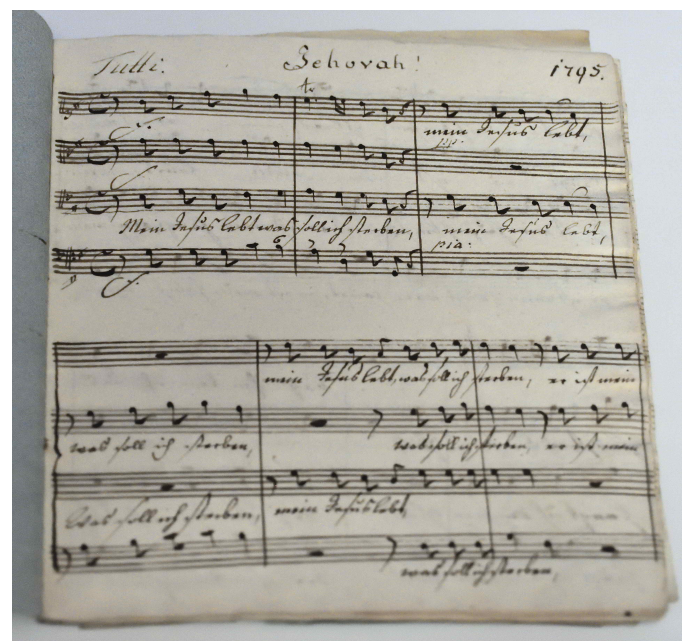 Tutti. Jehovah! 1795.
tr
mein Jesus lebt,
pp:
Mein Jesus lebt was soll ich sterben, mein Jesus lebt,
pia:
mein Jesus lebt, was soll ich sterben, er ist mein
was soll ich sterben, was soll ich sterben, er ist mein
Was soll ich sterben, mein Jesus lebt
was soll ich sterben,